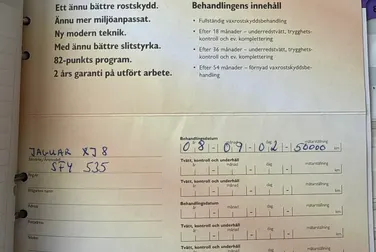 Ett ännu bättre rostskydd.
Ännu mer miljöanpassat.
Ny modern teknik.
Med ännu bättre slitstyrka.
82-punkts program.
2 års garanti på utfört arbete.
Behandlingens innehåll
• Fullständig vaxrostskyddsbehandling
• Efter 18 månader – underredstvätt, trygghets-
kontroll och ev. komplettering
• Efter 36 månader – underredstvätt, trygghets-
kontroll och ev. komplettering
• Efter 54 månader – förnyad vaxrostskyddsbe-
handling
JAGUAR XJ8
SFY 535
Behandlingsdatum
år månad dag mätarställning
08-09-02 50000 km
Tvätt, kontroll och underhåll
år månad dag mätarställning
km
Tvätt, kontroll och underhåll
år månad dag mätarställning
km
Tvätt, kontroll och underhåll
år månad dag mätarställning
km
Tvätt, kontroll och underhåll
år månad dag mätarställning
km
Tvätt, kontroll och underhåll